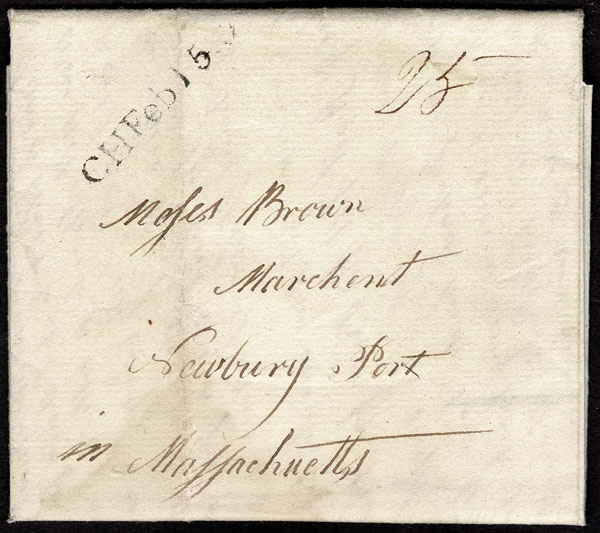 CHFeb15
25
Moſes Brown
Marchent
Newbury Port
in Maſſachuetts